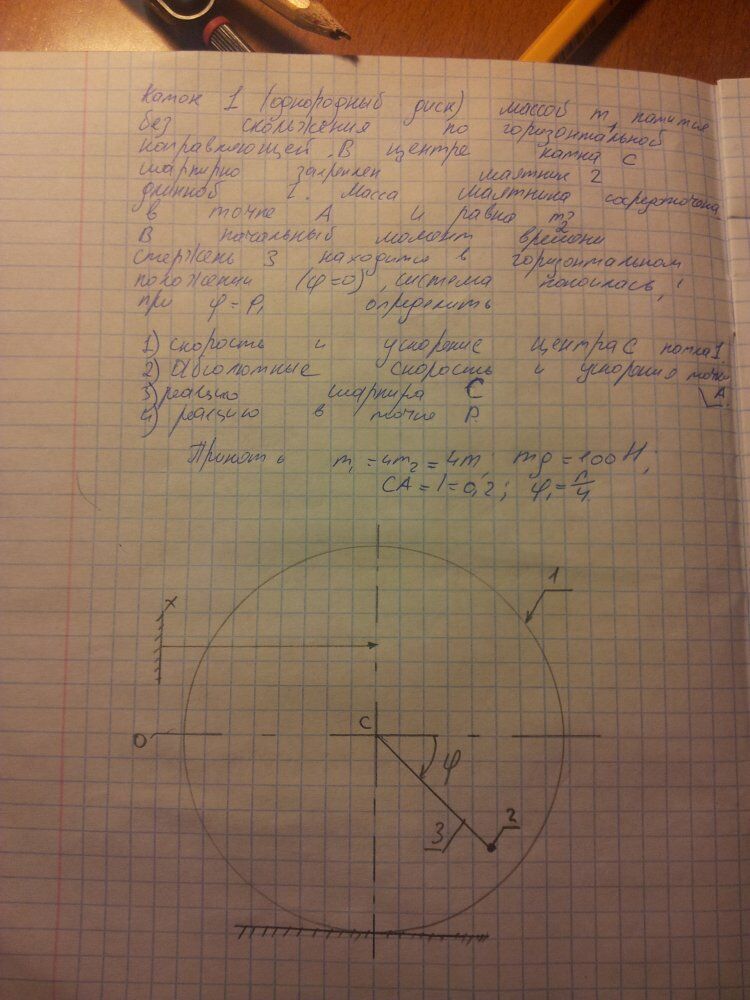 Каток 1 (однородный диск) массой m, катится
без скольжения по горизонтальной
направляющей. В центре катка C
шарнирно закреплен маятник 2
длинной l. Масса маятника сосредоточена
в точке A и равна m2
В начальный момент времени
стержень 3 находится в горизонтальном
положении (φ=0), система покоилась,
при φ=φ1 определить
1) скорость и ускорение центра C катка 1.
2) Абсолютные скорость и ускорения точки A
3) реакцию шарнира C
4) реакцию в точке P
Принять m1 = 4m2 = 4m; mg = 100 Н;
CA = l = 0,2; φ1 = π/4
x
1
C
O
φ
2
3